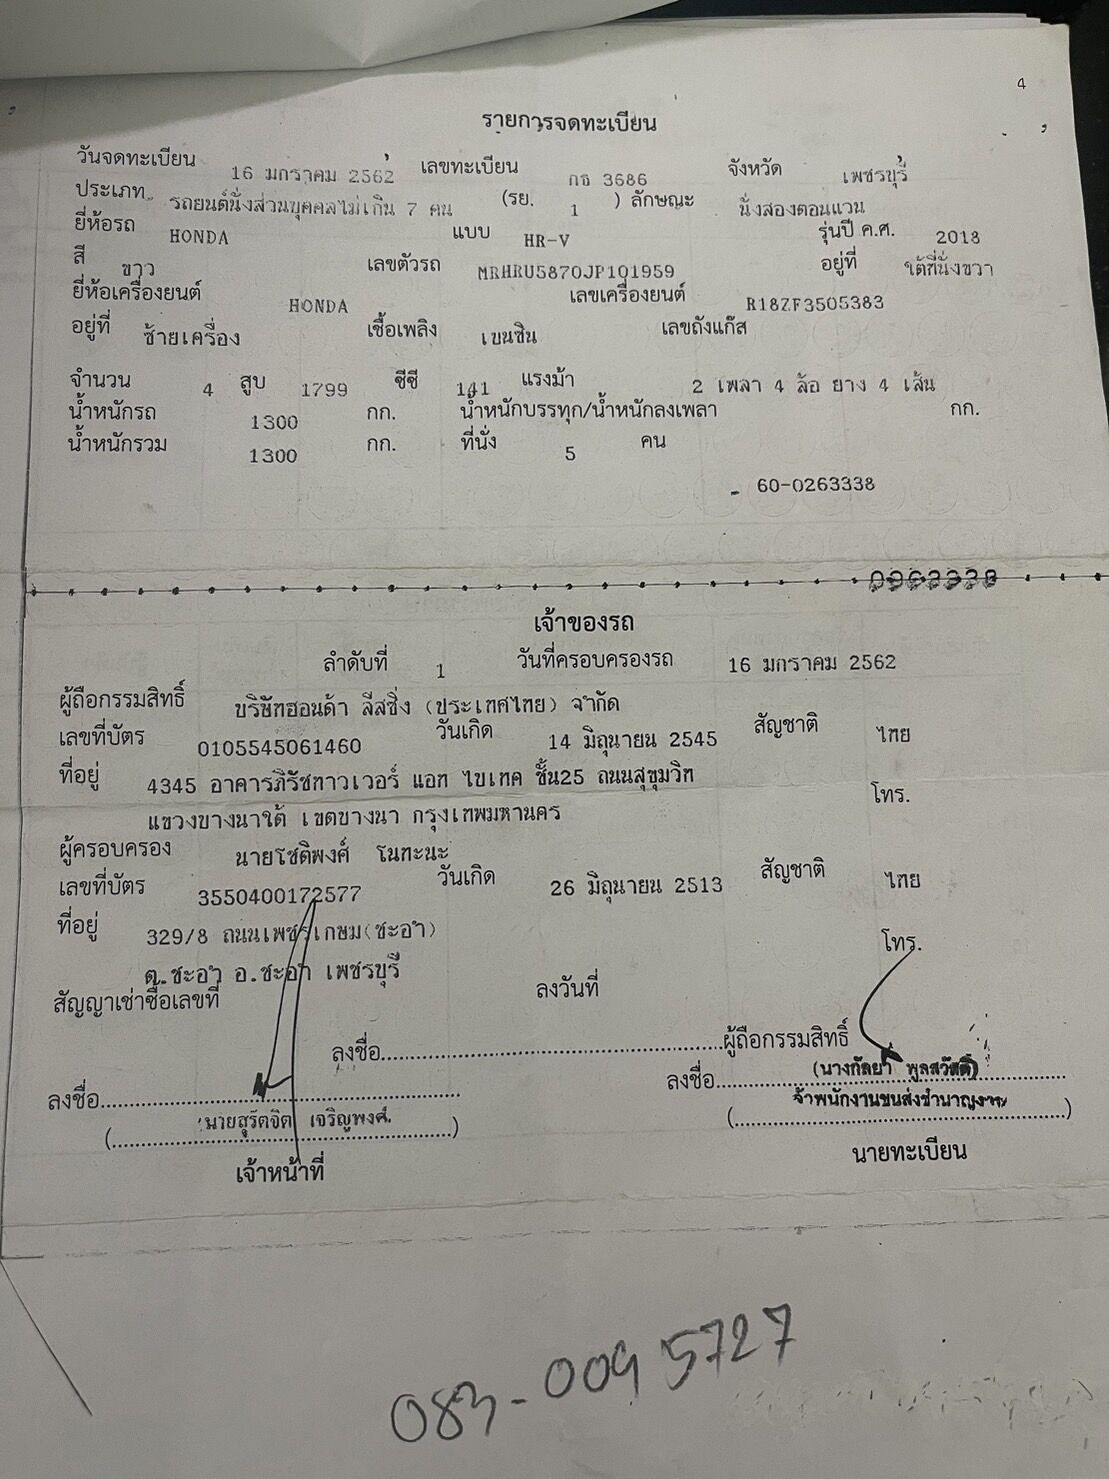 4
รายการจดทะเบียน
วันจดทะเบียน 16 มกราคม 2562 เลขทะเบียน กธ 3686 จังหวัด เพชรบุรี
ประเภท รถยนต์นั่งส่วนบุคคลไม่เกิน 7 คน (รย. 1 ) ลักษณะ นั่งสองตอนแวน
ยี่ห้อรถ HONDA แบบ HR-V รุ่นปี ค.ศ. 2018
สี ขาว เลขตัวรถ MRHRU5870JP101959 อยู่ที่ ใต้ที่นั่งขวา
ยี่ห้อเครื่องยนต์ HONDA เลขเครื่องยนต์ R18ZF3505383
อยู่ที่ ซ้ายเครื่อง เชื้อเพลิง เบนซิน เลขถังแก๊ส
จำนวน 4 สูบ 1799 ซีซี 141 แรงม้า 2 เพลา 4 ล้อ ยาง 4 เส้น
น้ำหนักรถ 1300 กก. น้ำหนักบรรทุก/น้ำหนักลงเพลา กก.
น้ำหนักรวม 1300 กก. ที่นั่ง 5 คน
60-0263338
เจ้าของรถ
ลำดับที่ 1 วันที่ครอบครองรถ 16 มกราคม 2562
ผู้ถือกรรมสิทธิ์ บริษัทฮอนด้า ลีสซิ่ง (ประเทศไทย) จำกัด
เลขที่บัตร 0105545061460 วันเกิด 14 มิถุนายน 2545 สัญชาติ ไทย
ที่อยู่ 4345 อาคารภิรัชทาวเวอร์ แอท ไบเทค ชั้น25 ถนนสุขุมวิท
แขวงบางนาใต้ เขตบางนา กรุงเทพมหานคร โทร.
ผู้ครอบครอง นายโชติพงศ์ โนทะนะ
เลขที่บัตร 3550400172577 วันเกิด 26 มิถุนายน 2513 สัญชาติ ไทย
ที่อยู่ 329/8 ถนนเพชรเกษม(ชะอำ)
ต.ชะอำ อ.ชะอำ เพชรบุรี โทร.
สัญญาเช่าซื้อเลขที่ ลงวันที่
ลงชื่อ..........ผู้ถือกรรมสิทธิ์
ลงชื่อ.......... ลงชื่อ..........
(นายสุรัตจิต เจริญพงศ์) (นางกัลยา พูลสวัสดิ์)
เจ้าพนักงานขนส่งชำนาญงาน
เจ้าหน้าที่ นายทะเบียน
083-009 5727